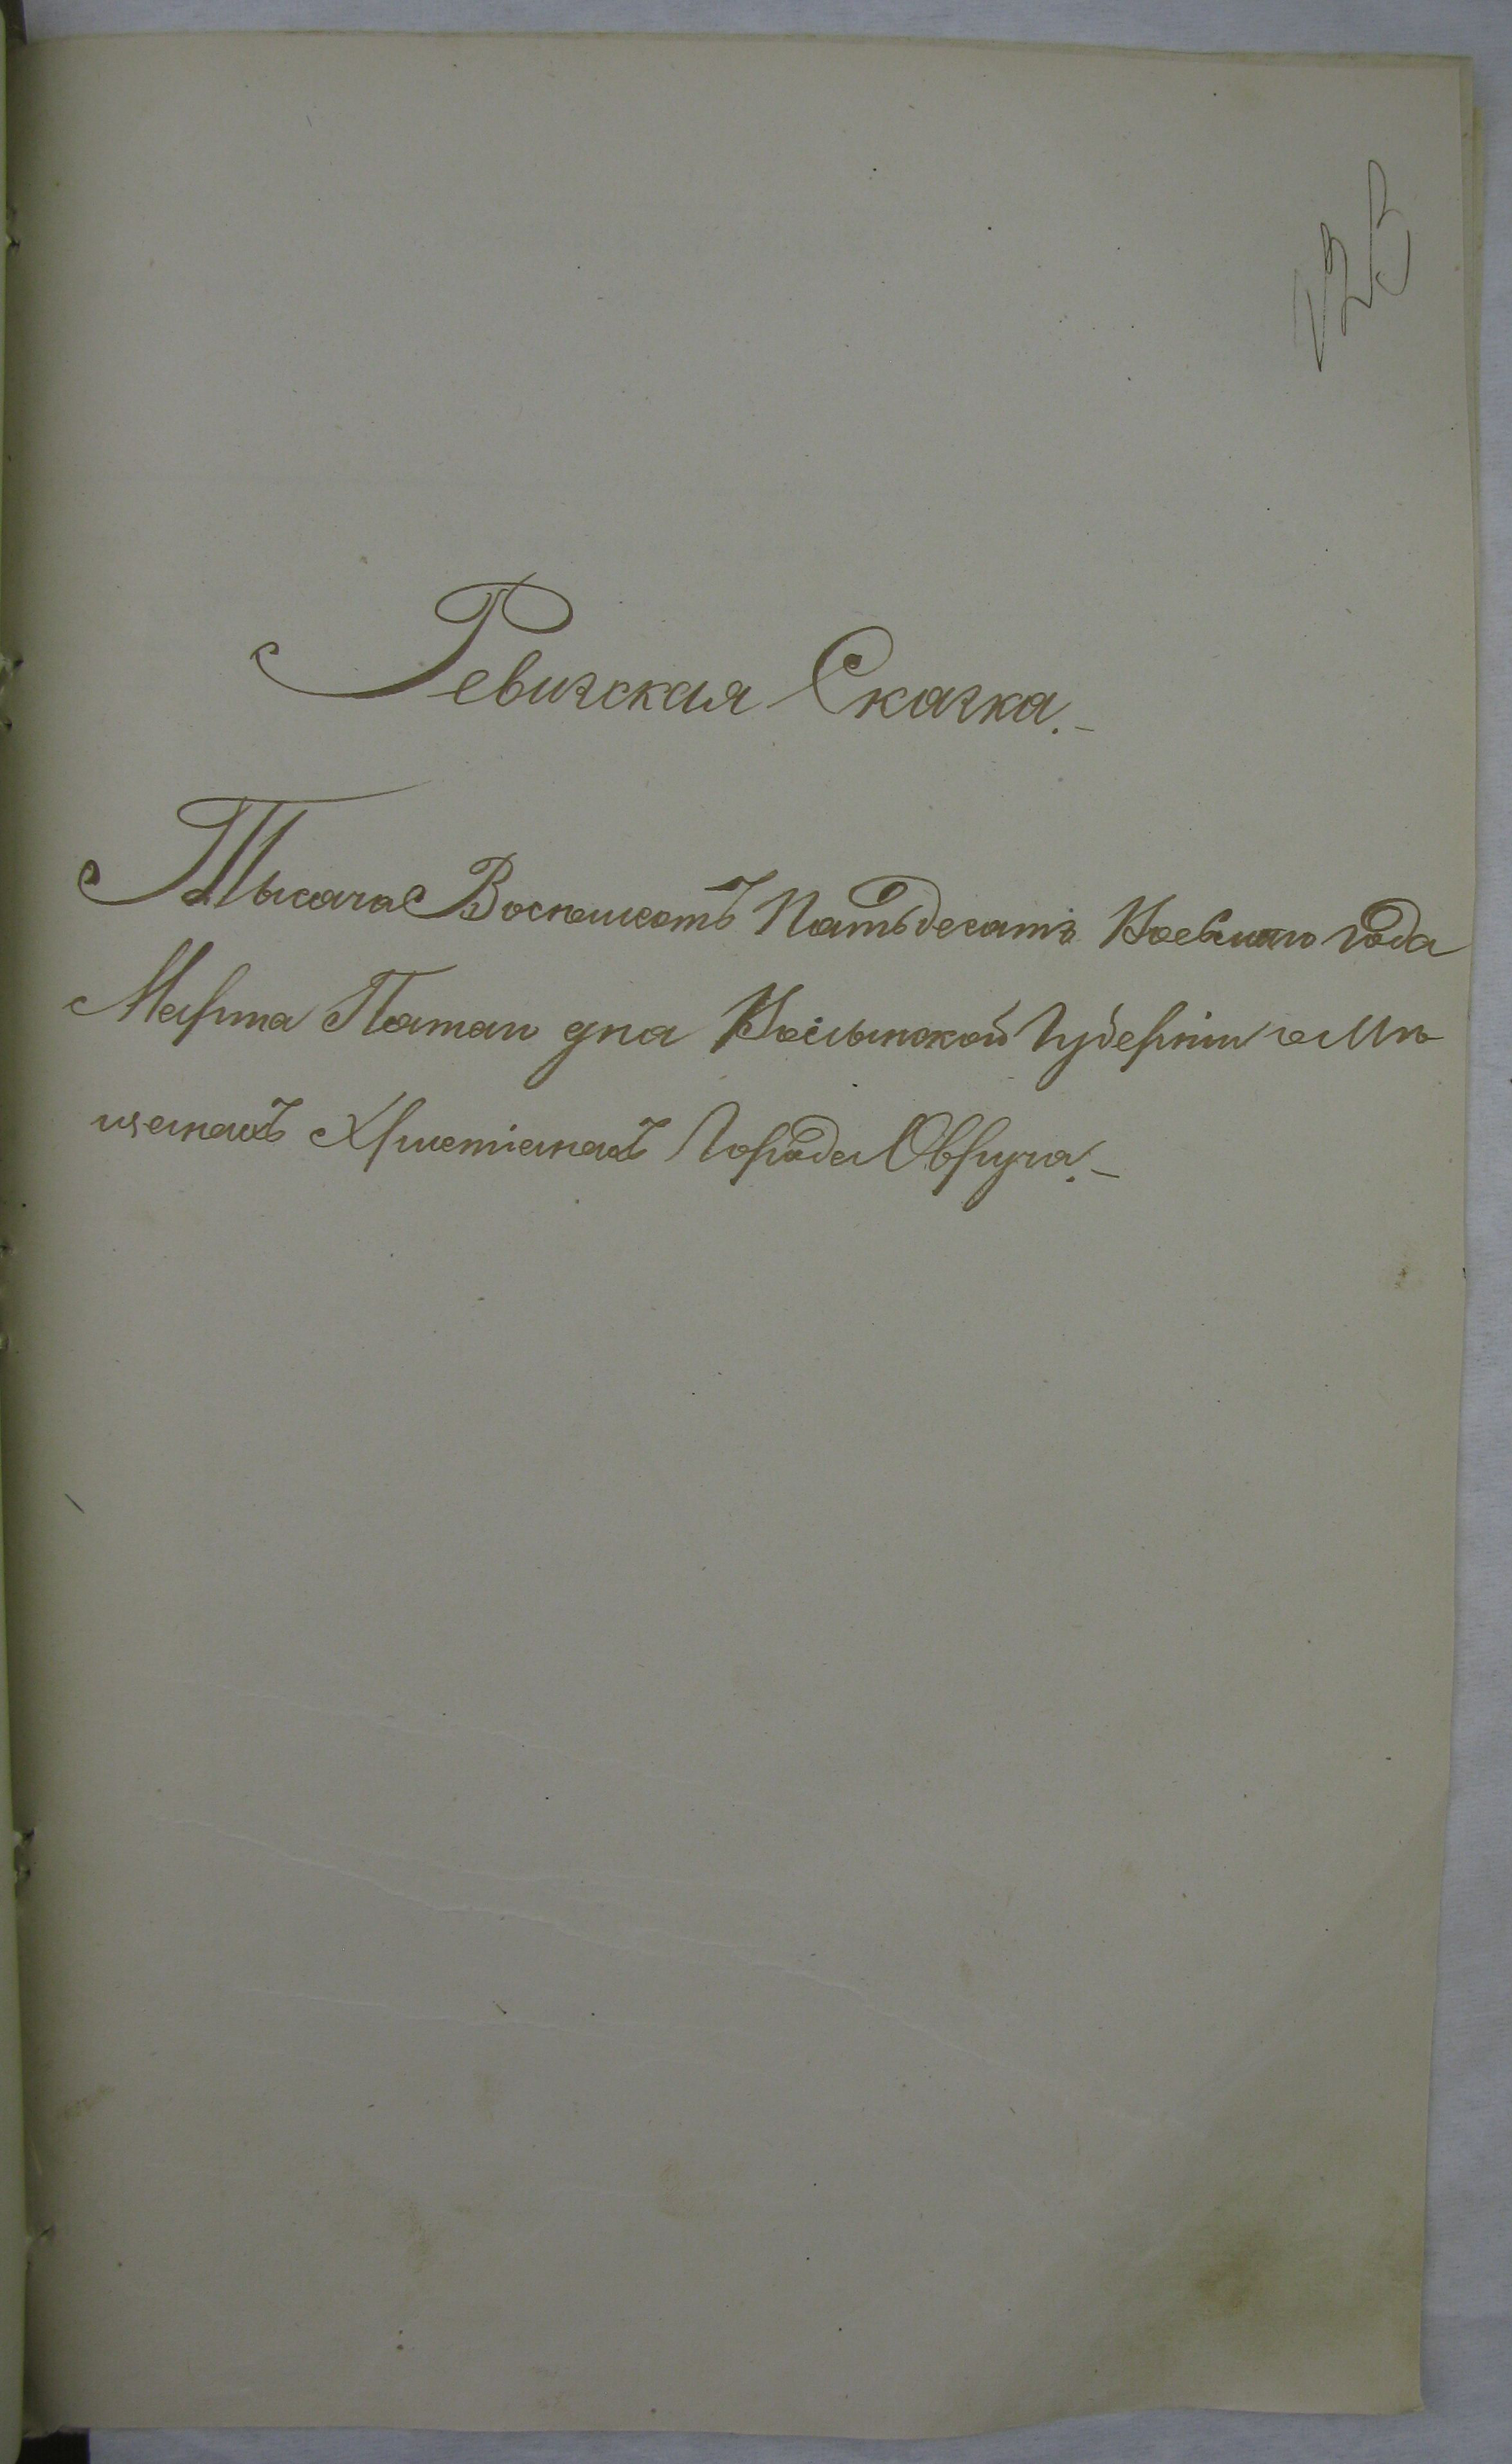 125
Ревизская Сказка.-
Тысяча Восемьсотъ Пятьдесятъ Восьмаго года
Марта Пятаго дня Волынской Губерніи о Мѣ
щанахъ Христіанахъ Города Овруча.-